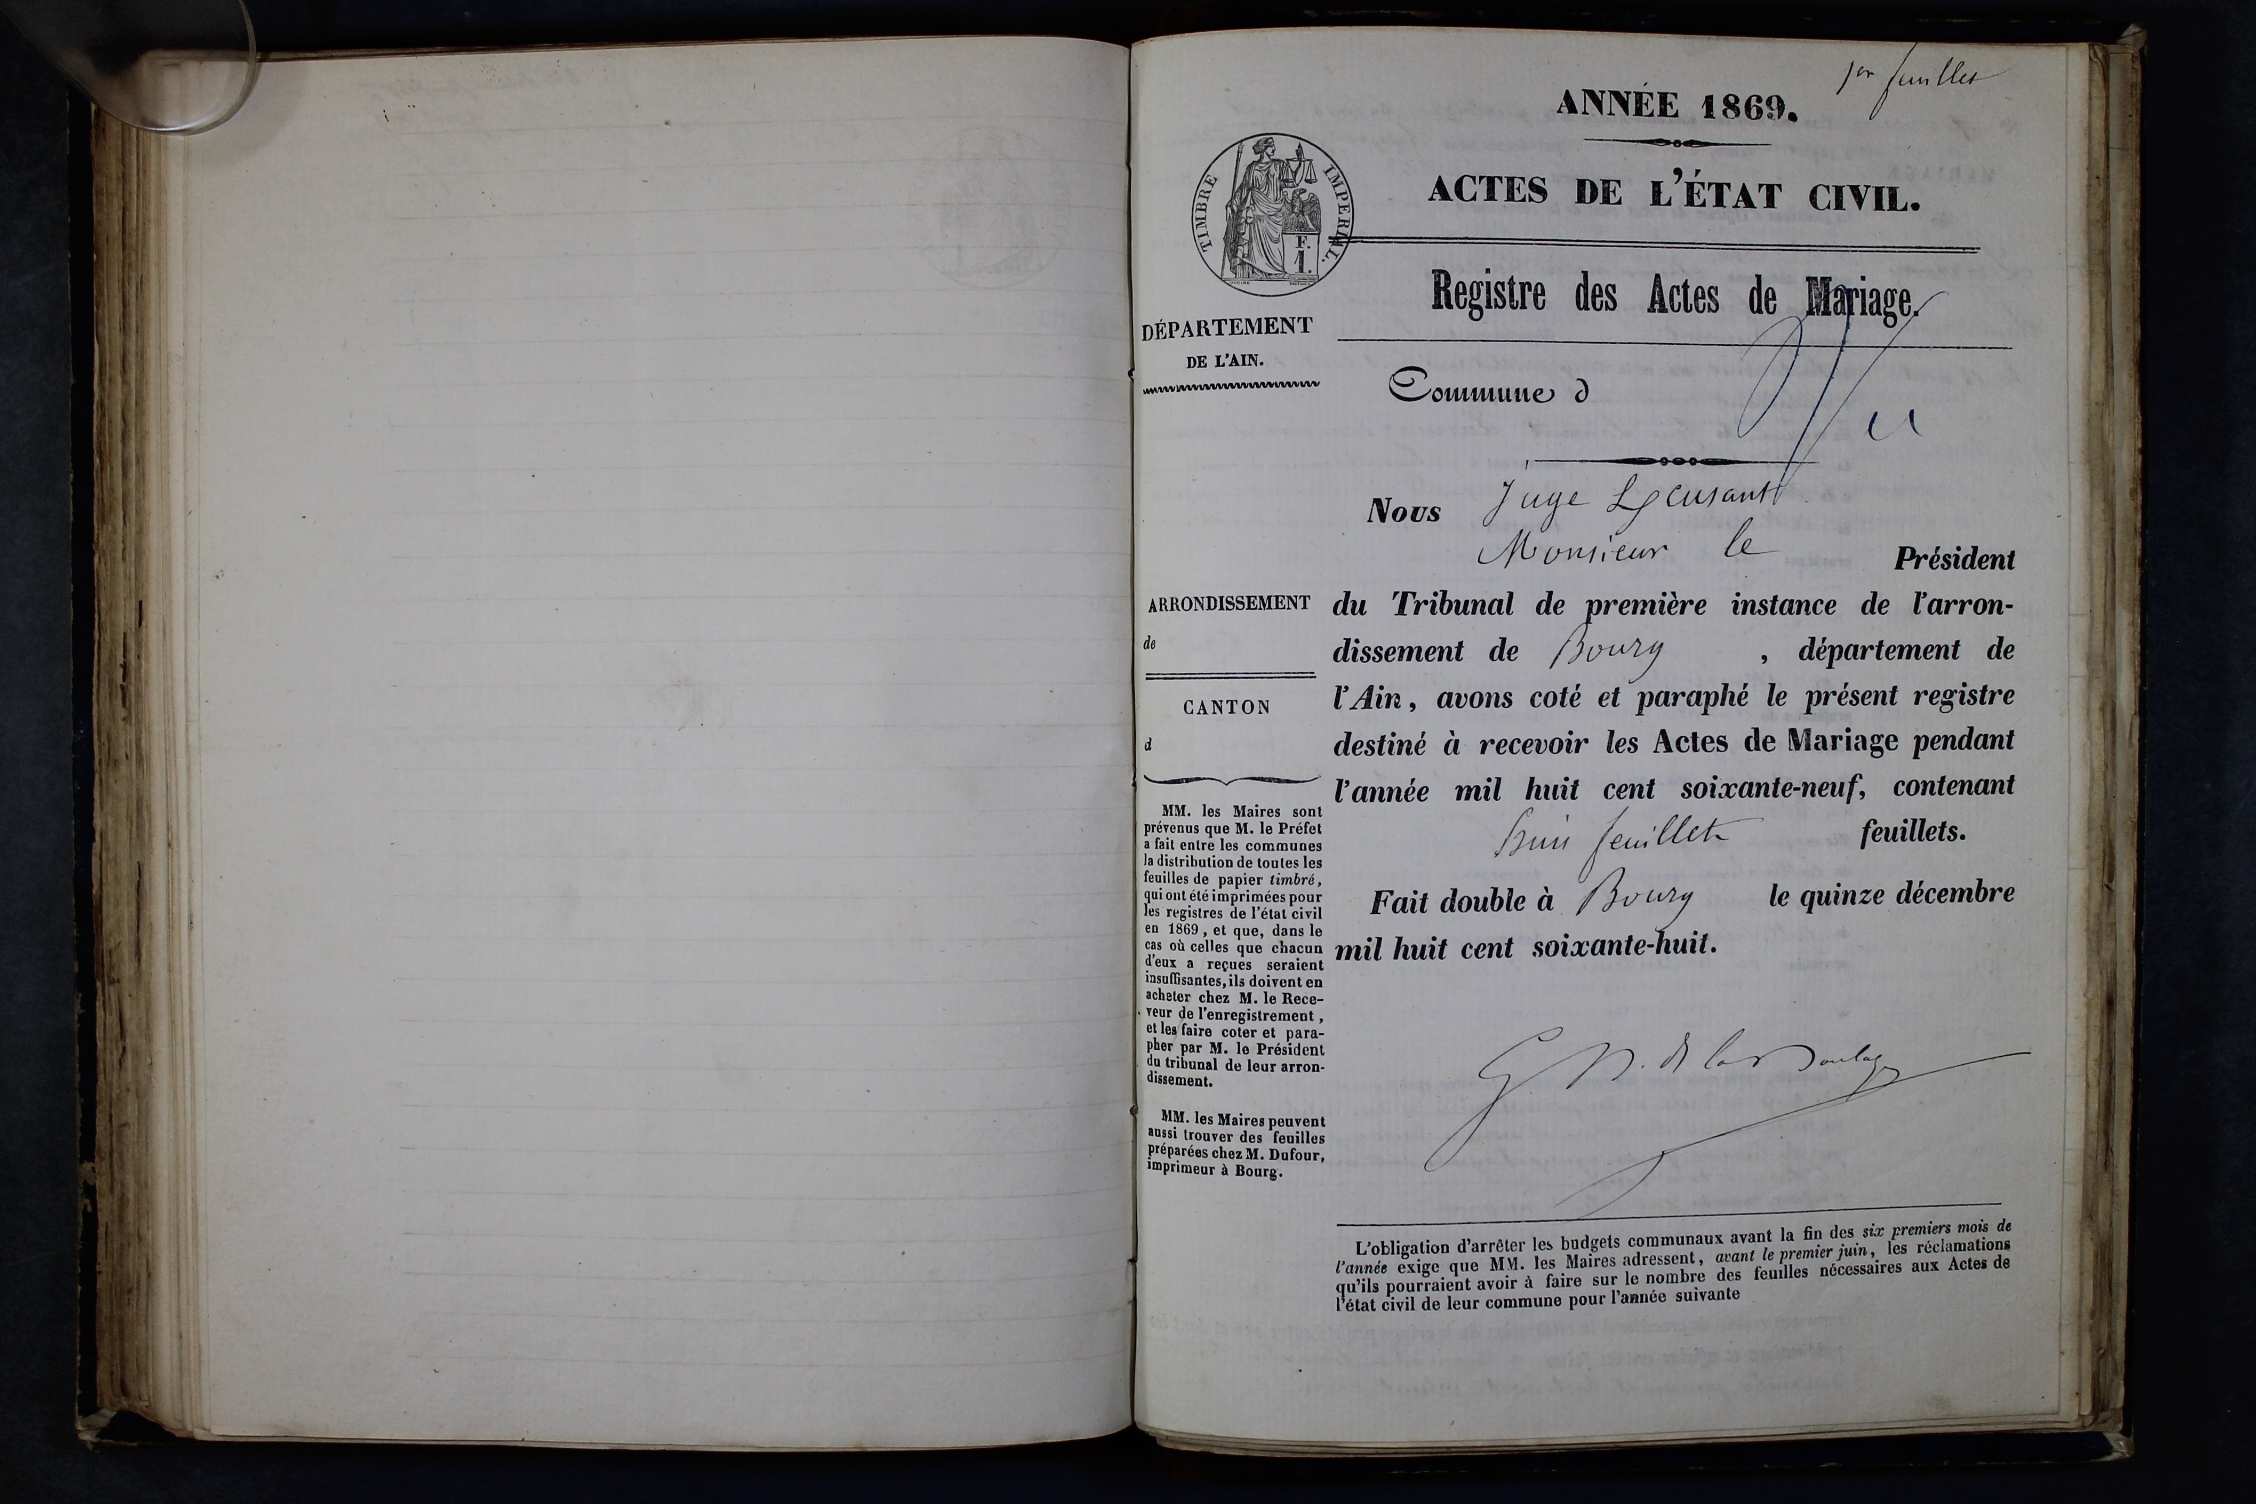 1er feuillet
ANNÉE 1869.
ACTES DE L'ÉTAT CIVIL.
TIMBRE IMPERIAL.
F.
1.
Registre des Actes de Mariage.
DÉPARTEMENT
DE L'AIN.
Commune d
Nous Juge
Monsieur le Président
ARRONDISSEMENT
de
CANTON
d
du Tribunal de première instance de l'arron-
dissement de Bourg , département de
l'Ain, avons coté et paraphé le présent registre
destiné à recevoir les Actes de Mariage pendant
l'année mil huit cent soixante-neuf, contenant
huit feuillets feuillets.
Fait double à Bourg le quinze décembre
mil huit cent soixante-huit.
MM. les Maires sont
prévenus que M. le Préfet
a fait entre les communes
la distribution de toutes les
feuilles de papier timbré,
qui ont été imprimées pour
les registres de l'état civil
en 1869, et que, dans le
cas où celles que chacun
d'eux a reçues seraient
insuffisantes, ils doivent en
acheter chez M. le Rece-
veur de l'enregistrement,
et les faire coter et para-
pher par M. le Président
du tribunal de leur arron-
dissement.
MM. les Maires peuvent
aussi trouver des feuilles
préparées chez M. Dufour,
imprimeur à Bourg.
L'obligation d'arrêter les budgets communaux avant la fin des six premiers mois de
l'année exige que MM. les Maires adressent, avant le premier juin, les réclamations
qu'ils pourraient avoir à faire sur le nombre des feuilles nécessaires aux Actes de
l'état civil de leur commune pour l'année suivante